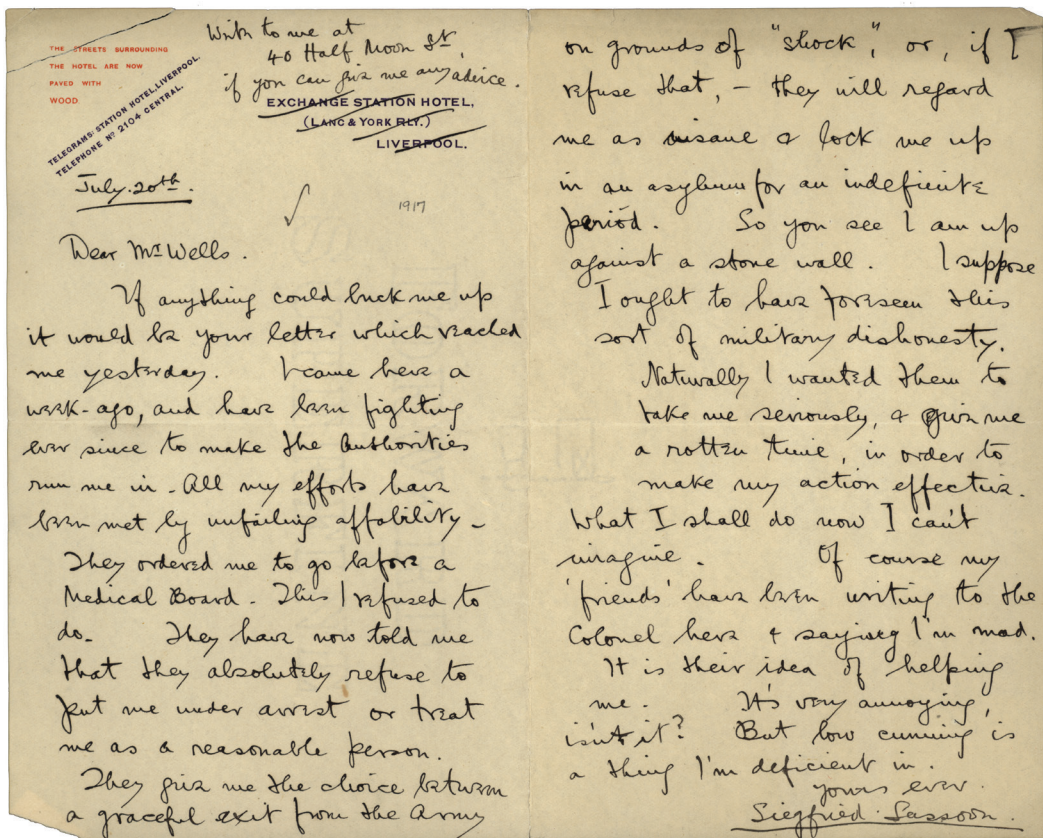 THE STREETS SURROUNDING
THE HOTEL ARE NOW
PAVED WITH
WOOD.
TELEGRAMS: STATION HOTEL, LIVERPOOL.
TELEPHONE Nº 2104 CENTRAL.
Write to me at
40 Half Moon St,
if you can give me any advice.
EXCHANGE STATION HOTEL,
(LANC & YORK RLY.)
LIVERPOOL.
July. 20th.
1917
Dear Mr Wells.
If anything could buck me up
it would be your letter which reached
me yesterday. I came here a
week-ago, and have been fighting
ever since to make the Authorities
run me in. All my efforts have
been met by unfailing affability.
They ordered me to go before a
Medical Board. This I refused to
do. They have now told me
that they absolutely refuse to
put me under arrest or treat
me as a reasonable person.
They give me the choice between
a graceful exit from the Army
on grounds of "shock", or, if I
refuse that, – they will regard
me as insane & lock me up
in an asylum for an indefinite
period. So you see I am up
against a stone wall. I suppose
I ought to have foreseen this
sort of military dishonesty.
Naturally I wanted them to
take me seriously, & give me
a rotten time, in order to
make my action effective.
What I shall do now I can't
imagine. Of course my
'friends' have been writing to the
Colonel here & saying I'm mad.
It is their idea of helping
me. It's very annoying,
isn't it? But low cunning is
a thing I'm deficient in.
yours ever.
Siegfried Sassoon.